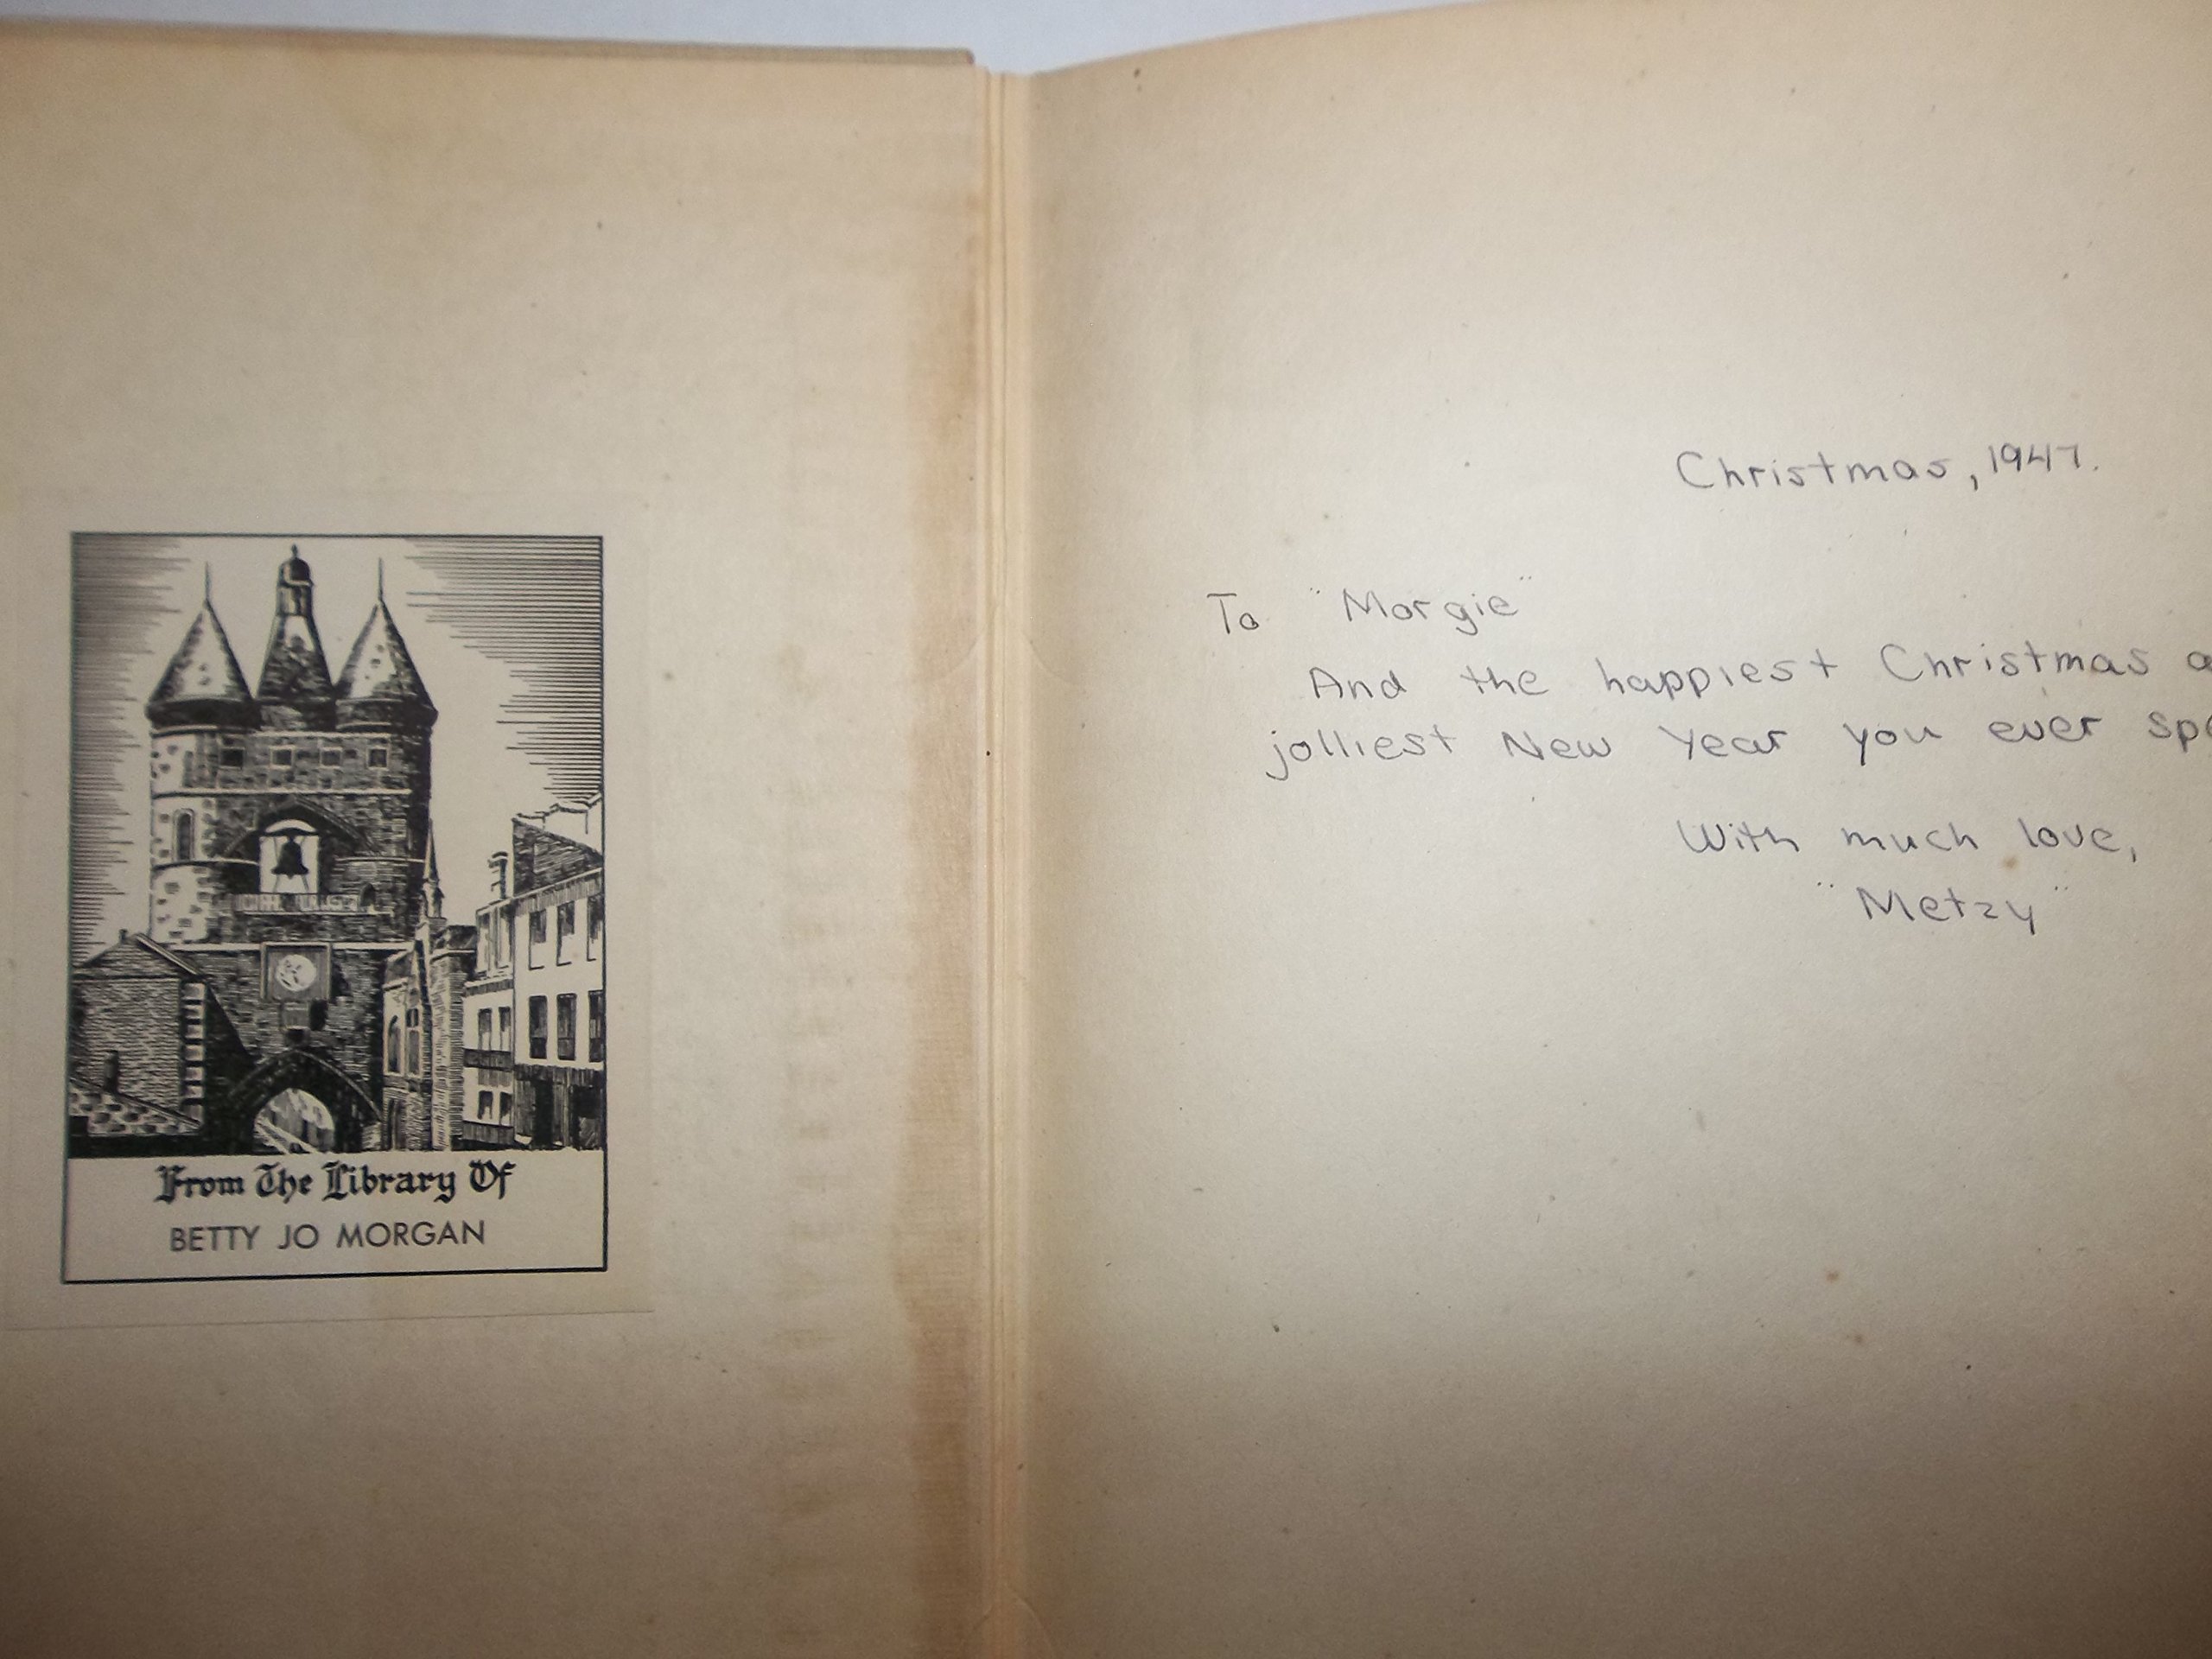 From The Library Of
BETTY JO MORGAN
Christmas, 1947.
To "Morgie"
And the happiest Christmas
jolliest New Year you ever
With much love,
"Metzy"